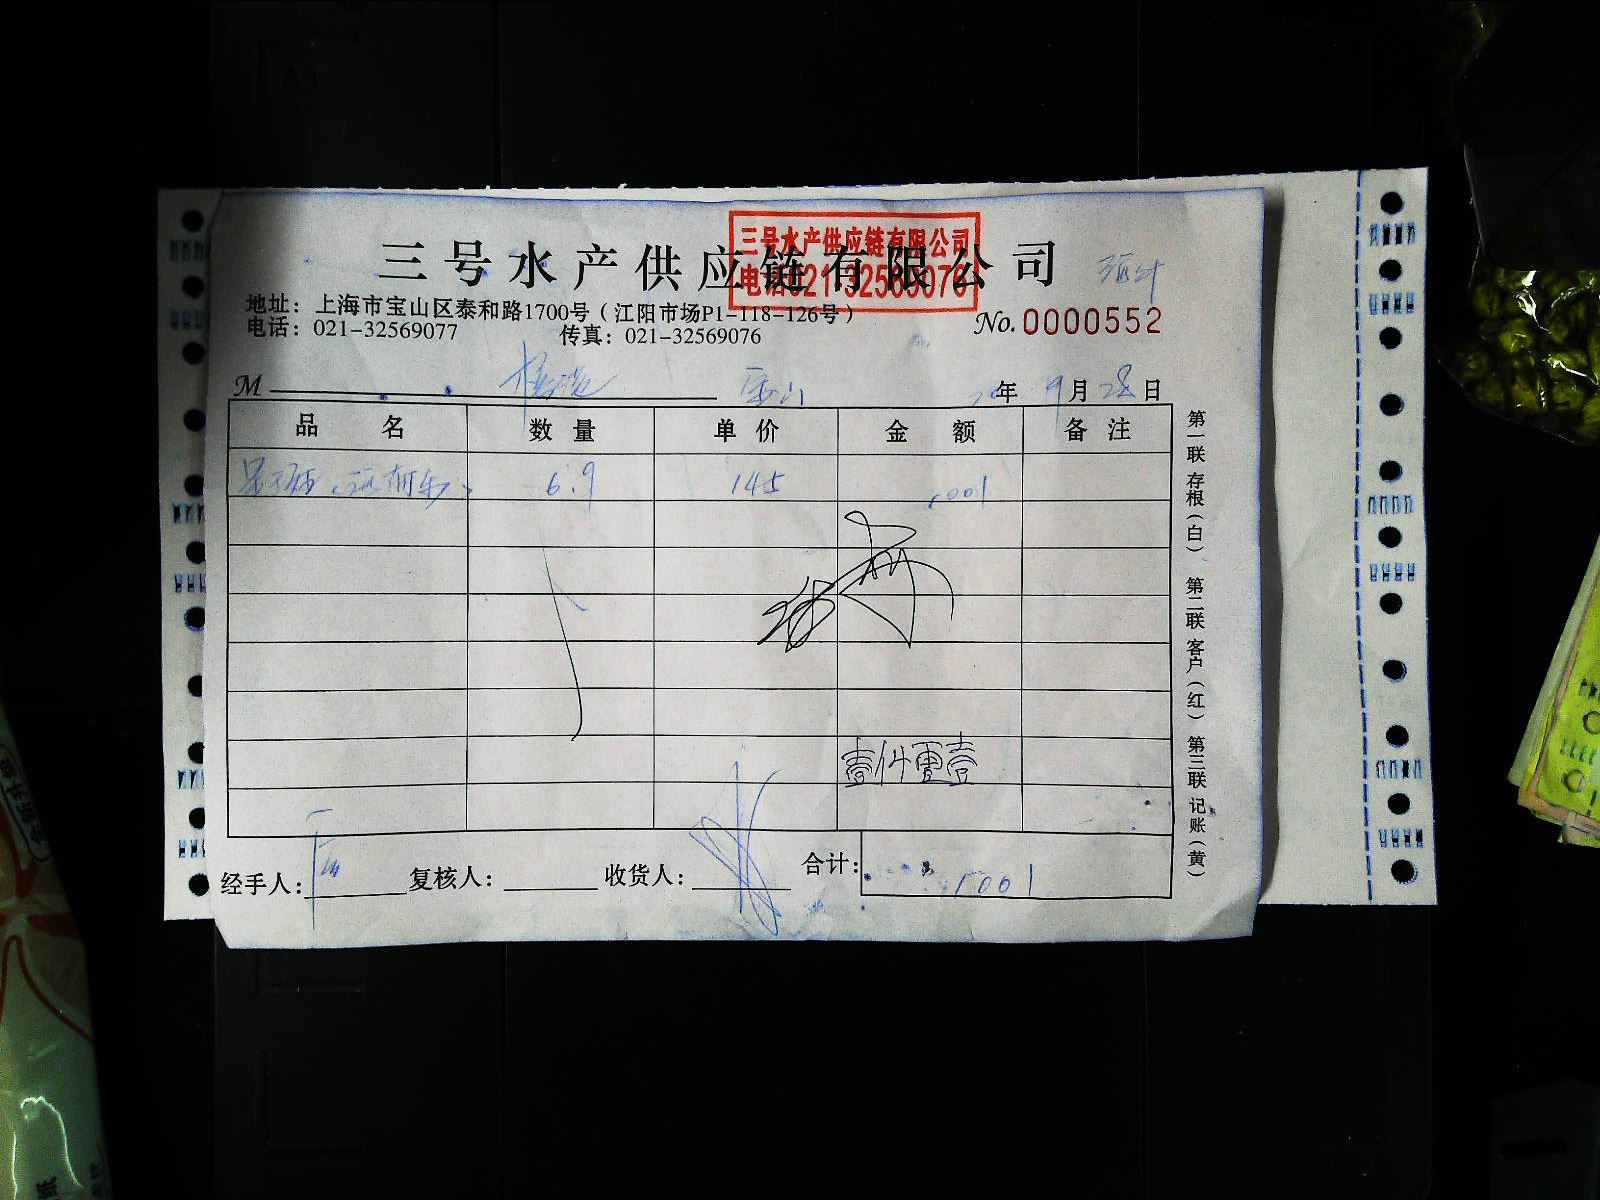 三号水产供应链有限公司
三号水产供应链有限公司
电话:021-32569076
地址：上海市宝山区泰和路1700号（江阳市场P1-118-126号）
电话：021-32569077 传真：021-32569076
No.0000552
M 年 9月28日
品 名 数 量 单 价 金 额 备 注
6.9 145 1001
壹仟零壹
合计: 1001
经手人: 复核人: 收货人:
第一联 存根（白） 第二联 客户（红） 第三联 记账（黄）